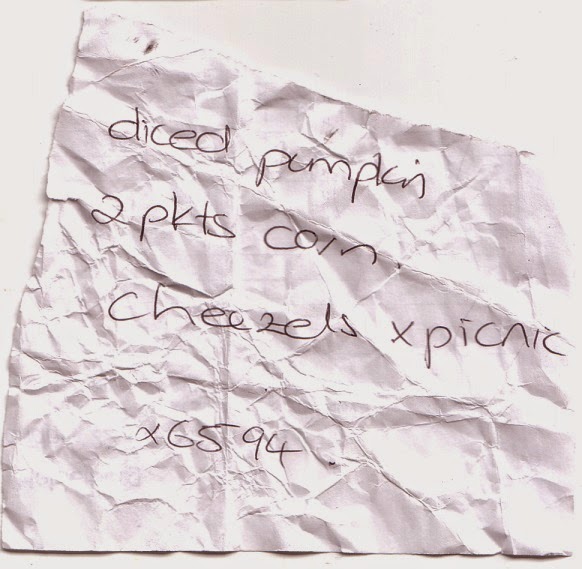 diced pumpkin
2pkts corn.
Cheezels x picnic
x6594.